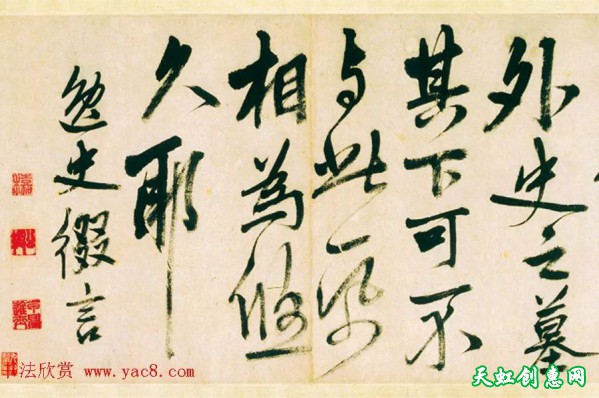 外史之墓
其下可不
与此
相為悠
久耶
史言
法欣赏 www.yac8.com
天虹创惠网